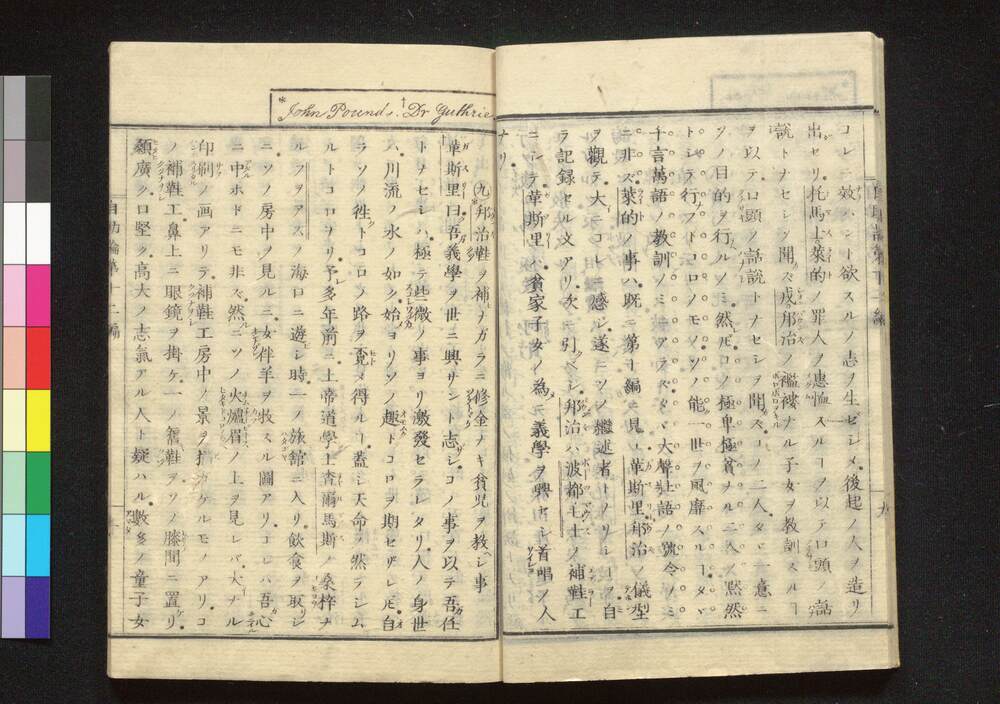 コレニ效ハント欲スルノ志ヲ生ビシメ後起ノ人ヲ造リ
出セリ托馬士萊的ノ罪人ヲ惠恤スルヿヲ以テ口頭ノ話
説トナセシヲ聞ズ戎邦治ノ襤褸ナル子女ヲ教訓スルヿ
ヲ以テ口頭ノ話説トナセシヲ聞ズコノ二人タヾ一意ニ
ソノ目的ヲ行フルノミ然レ𪜈コノ極卑極貧ナル二人ノ黙然
トシテ行フトコロノモノソノ能一世ヲ風靡スルヿタヾ
千言萬語ノ教訓ノミナラズタヾ大聲壯語ノ號令ノミ
ニ非ズ萊的ノ事ハ既ニ第一編ニ見ユ華斯里邦治ノ儀型
ヲ觀テ大ニコレニ感ジ遂ニソノ繼述者トナリシヿヲ自
ラ記録セル文アリ次ニ引ベシ邦治ハ波都毛士ノ補鞋工
ニシテ華斯里ハ貧家子女ノ為ニ義學ヲ興セシ首唱ノ人
ナリ
*John Pound. †Dr Guthrie
(九)*邦治鞋ヲ補ナガラニ修金ナキ貧児ヲ教ヘシ事
†華斯里曰吾義學ヲ世ニ興サント志シコノ事ヲ以テ吾任
トナセシハ極テ些微ノ事ヨリ激發セラレタリ人ノ身世
ハ川流ノ水ノ如ク始ヨリソノ趣トコロヲ期セザレ𪜈自
ラソノ徃トコロノ路ヲ覔メ得ルヿ蓋シ天命ノ然ラシム
ルトコロナリ予多年前ニ土帝道學士査爾馬斯ノ桑梓ナ
ルフヲアスノ海口ニ遊シ時一ノ旅舘ニ入リ飲食ヲ取シ
ニソノ房中ヲ見ルニ女伴羊ヲ牧スル圖アリコレハ吾心
ニ中ホドニモ非ズ然ニソノ火爐眉ノ上ヲ見レバ大ナル
印刷ノ画アリテ補鞋工房中ノ景ヲ描カケルモノアリコ
ノ補鞋工鼻上ニ眼鏡ヲ掛ケ一ノ舊鞋ヲソノ膝間ニ置ケリ
額廣ク口堅ク高大ノ志氣アル人ト疑ハル數多ノ童子女
自助論第十一編